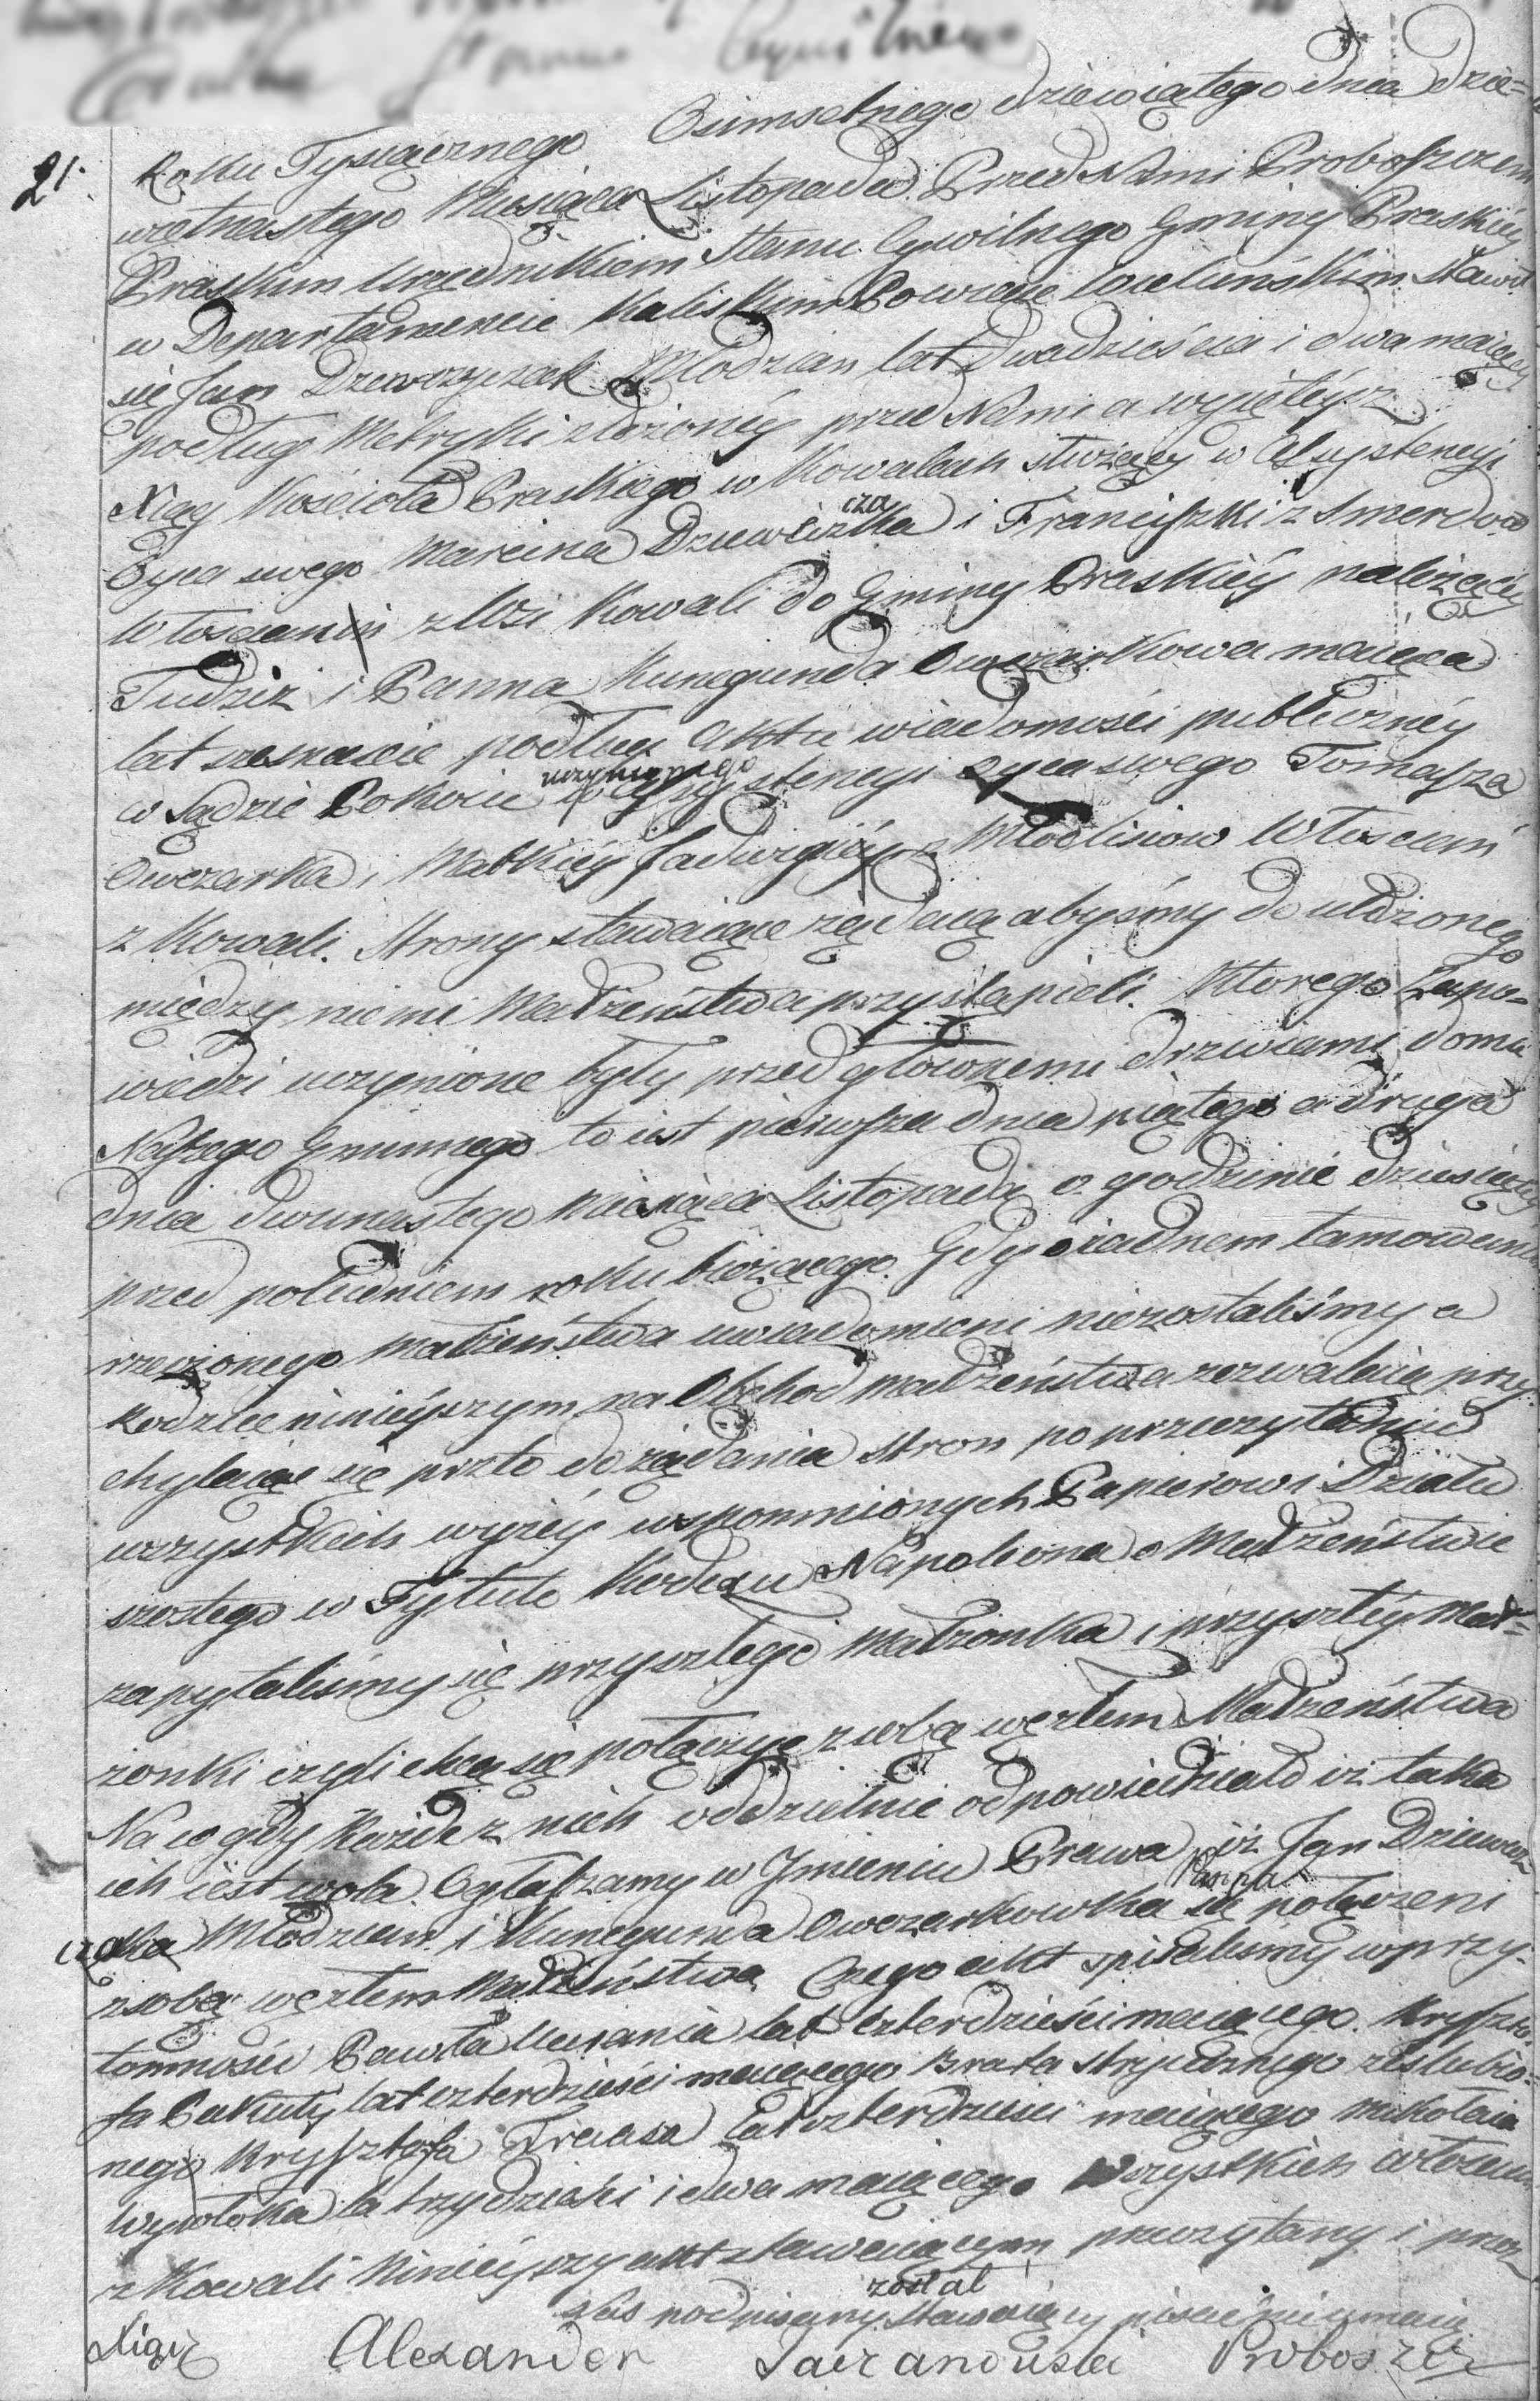 21. Roku Tysiącznego Osimsetnego dziewiątego dnia dzie=
więtnastego Miesiąca Listopada Przed Nami Proboszczem
Praskim Urzędnikiem Stanu Cywilnego Gminy Praskiéy
w Departamencie Kaliskim Powiecie Wieluńskim Stawił
się Jan Dziewczyczak Młodzian lat dwadzieścia i dwa maiący
podług Metryki złożonéy przed Nami a wyiętéy z
Xiąg Kościoła Praskiego w Kowalach służący w Assystencyi
Oyca swego Marcina Dziewczka i Franciszki z
Włoscian z Wsi Kowali do Gminy Praskiéy należącéy
Tudzież i Panna Kunegunda Owczarkowa maiąca
lat szesnaście podług Aktu wiadomości publicznéy
w Sądzie Pokoiu uczynionego w assystencyi Oyca swego Tomasza
Owczarka i Matkiéy Jadwigiéy z Włościan
z Kowali. Strony stawaiące żądaią abyśmy do ułożonego
między niemi Małżeństwa przystąpieli. Ktorego Zapo=
wiedzi uczynione były przed głownemi drzwiami domu
Naszego Gminnego to iest pierwsza dnia piątego a druga
dnia dwunastego Miesiąca Listopada o godzinie dziesiątéy
przed południem roku bieżącego. Gdy o żadnem tamowaniu
rzeczonego Małżeństwa uwiadomieni niezostaliśmy a
Rodzice ninieyszym na Obchod Małżeństwa zezwalaią przy
chylaiąc się przeto do żądania stron po przeczytaniu
wszystkich wyżéy wspomnionych Papierow i Działu
szostego w Tytule Kodexu Napoleona o Małżeństwie
zapytaliśmy się przyszłego Małżonka i przyszłéy Mał=
żonki czyli chcą się połączyć z sobą węzłem Małżeństwa
Na co gdy każde z nich oddzielnie odpowiedziało iż taka
ich iest wola Ogłaszamy w Imieniu Prawa iż Jan Dziewcz
czak Młodzian i Panna Kunegunda Owczarkowka są połączeni
z sobą węzłem Małżeństwa Czego akt spisaliśmy w przy=
tomności Pawła lat czterdzieści maiącego. Kryszto
fa Pakuły lat czterdzieści maiącego Brata stryiecznego zaslubio=
nego Krysztofa lat czterdzieści maiącego Mikołaia
Wywłoka la trzydzieści i dwa maiącego Wszystkich włoscian
z Kowali Ninieyszy akt stawaiącym przeczytany i przez
Nas podpisany został Stawaiący pisać nieumieią
Xiądz Alexander Proboszcz